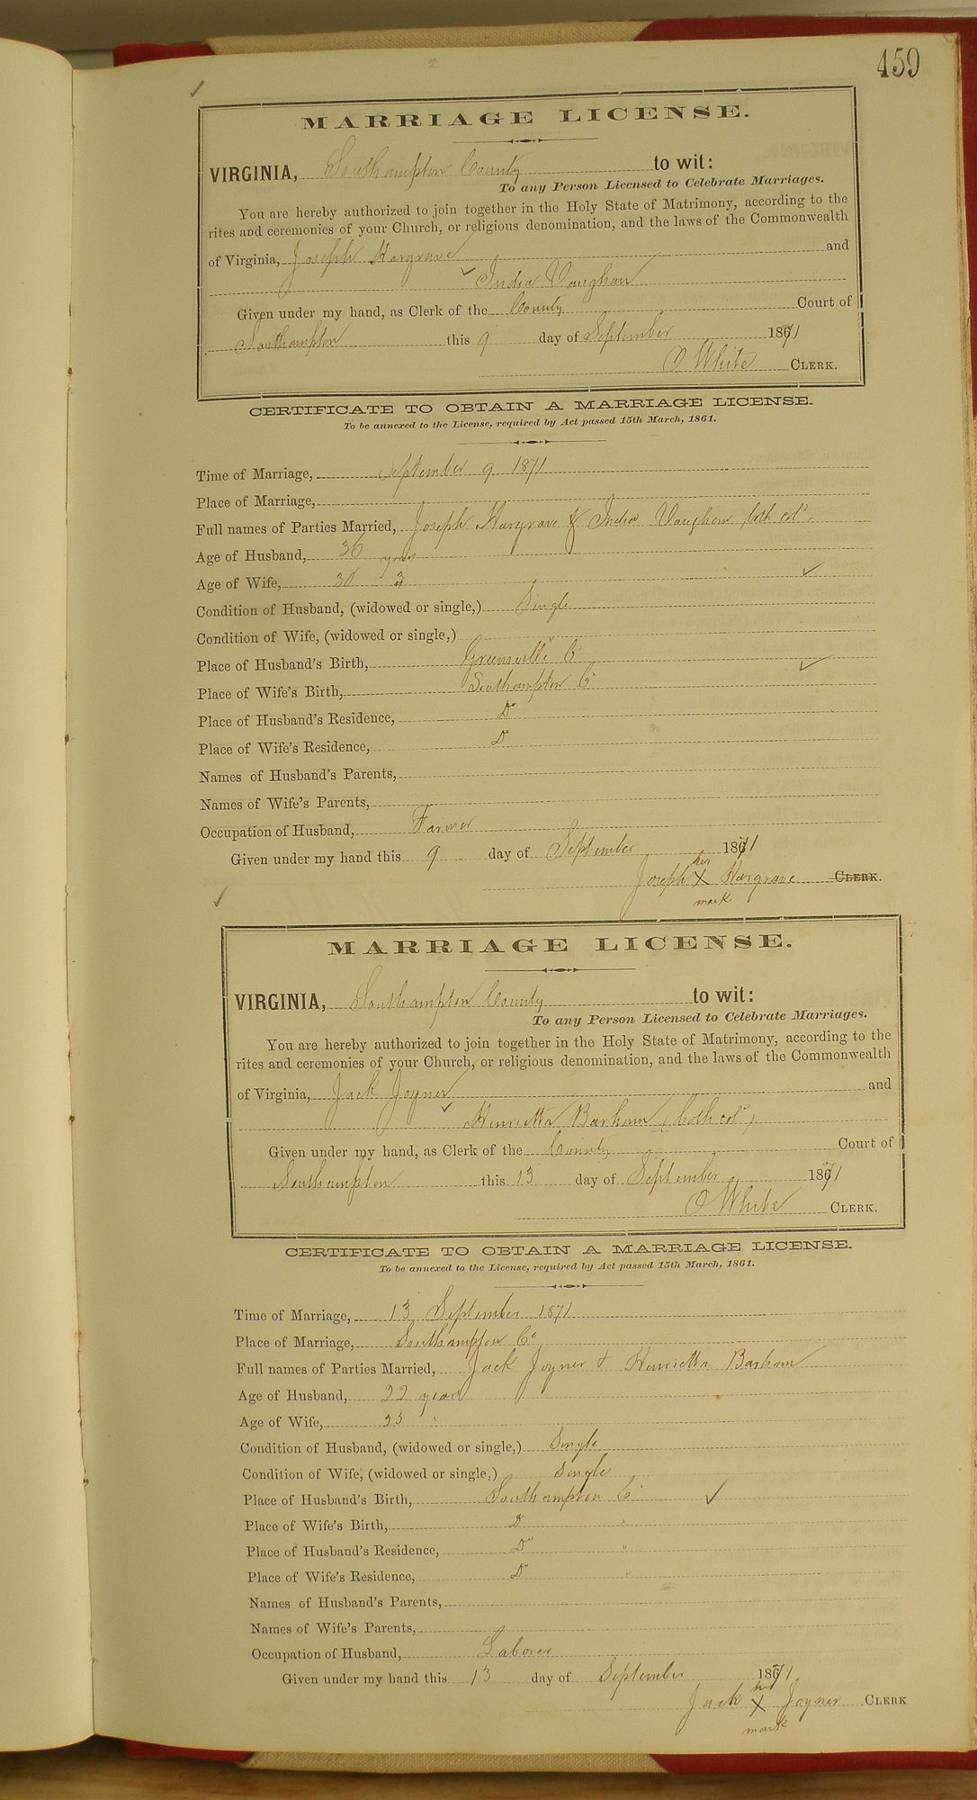 459
MARRIAGE LICENSE.
VIRGINIA, Southampton County to wit:
To any Person Licensed to Celebrate Marriages.
You are hereby authorized to join together in the Holy State of Matrimony, according to the
rites and ceremonies of your Church, or religious denomination, and the laws of the Commonwealth
of Virginia, Joseph Hargrave and
India Vaughan
Given under my hand, as Clerk of the County Court of
Southampton this 9 day of September 1871
White CLERK.
CERTIFICATE TO OBTAIN A MARRIAGE LICENSE.
To be annexed to the License, required by Act passed 15th March, 1861.
Time of Marriage, September 9 1871
Place of Marriage,
Full names of Parties Married, Joseph Hargrave & India Vaughan both col'd.
Age of Husband, 36 years
Age of Wife, 30
Condition of Husband, (widowed or single,) Single
Condition of Wife, (widowed or single,) "
Place of Husband's Birth, Greensville Co
Place of Wife's Birth, Southampton Co
Place of Husband's Residence, Do
Place of Wife's Residence, Do
Names of Husband's Parents,
Names of Wife's Parents,
Occupation of Husband, Farmer
Given under my hand this 9 day of September 1871
his
Joseph X Hargrave CLERK.
mark
MARRIAGE LICENSE.
VIRGINIA, Southampton County to wit:
To any Person Licensed to Celebrate Marriages.
You are hereby authorized to join together in the Holy State of Matrimony, according to the
rites and ceremonies of your Church, or religious denomination, and the laws of the Commonwealth
of Virginia, Jack Joyner and
Henrietta Barham (both col'd)
Given under my hand, as Clerk of the County Court of
Southampton this 13 day of September 1871
White CLERK.
CERTIFICATE TO OBTAIN A MARRIAGE LICENSE.
To be annexed to the License, required by Act passed 15th March, 1861.
Time of Marriage, 13 September 1871
Place of Marriage, Southampton Co
Full names of Parties Married, Jack Joyner & Henrietta Barham
Age of Husband, 22 years
Age of Wife, 23 "
Condition of Husband, (widowed or single,) Single
Condition of Wife, (widowed or single,) Single
Place of Husband's Birth, Southampton Co
Place of Wife's Birth, Do "
Place of Husband's Residence, Do "
Place of Wife's Residence, Do "
Names of Husband's Parents,
Names of Wife's Parents,
Occupation of Husband, Laborer
Given under my hand this 13 day of September 1871
his
Jack X Joyner CLERK
mark